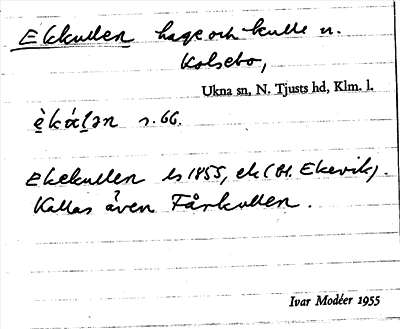 Ekkullen hage och kulle n.
Kolsebo,
Ukna sn, N. Tjusts hd, Klm. l.
s. 66.
Ekekullen ls 1855, ek (Bl. Ekevik).
Kallas även Fårkullen.
Ivar Modéer 1955